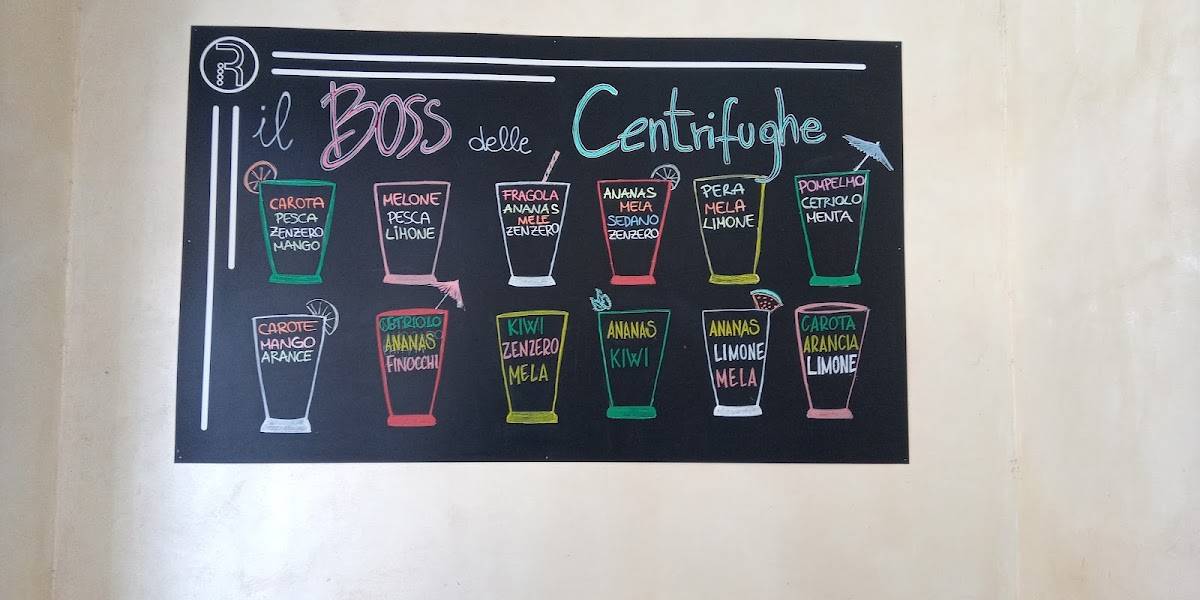 R
il Boss delle Centrifughe
CAROTA
PESCA
ZENZERO
MANGO
MELONE
PESCA
LIMONE
FRAGOLA
ANANAS
MELE
ZENZERO
ANANAS
MELA
SEDANO
ZENZERO
PERA
MELA
LIMONE
POMPELMO
CETRIOLO
MENTA
CAROTE
MANGO
ARANCE
CETRIOLO
ANANAS
FINOCCHI
KIWI
ZENZERO
MELA
ANANAS
KIWI
ANANAS
LIMONE
MELA
CAROTA
ARANCIA
LIMONE